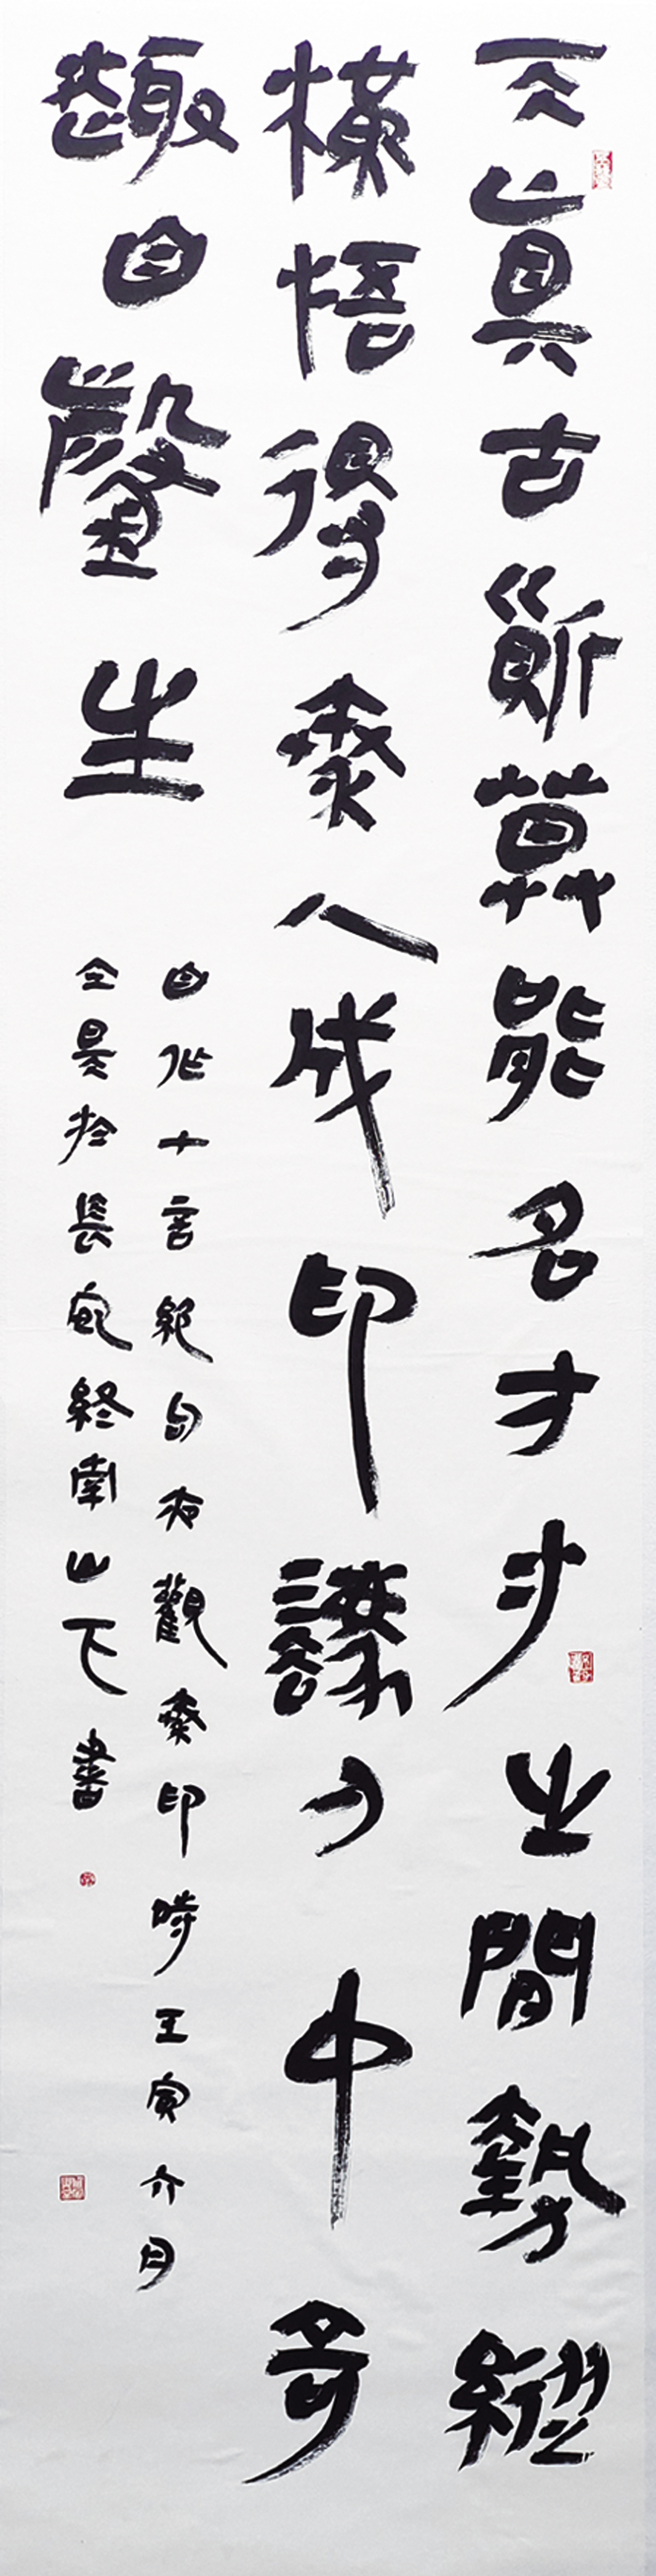 天真古莫能名方寸之間勢縱
橫悟得秦人成印刀中奇
趣自生
自作十言絕句夜觀秦印時壬寅六月
於長安終南山下書